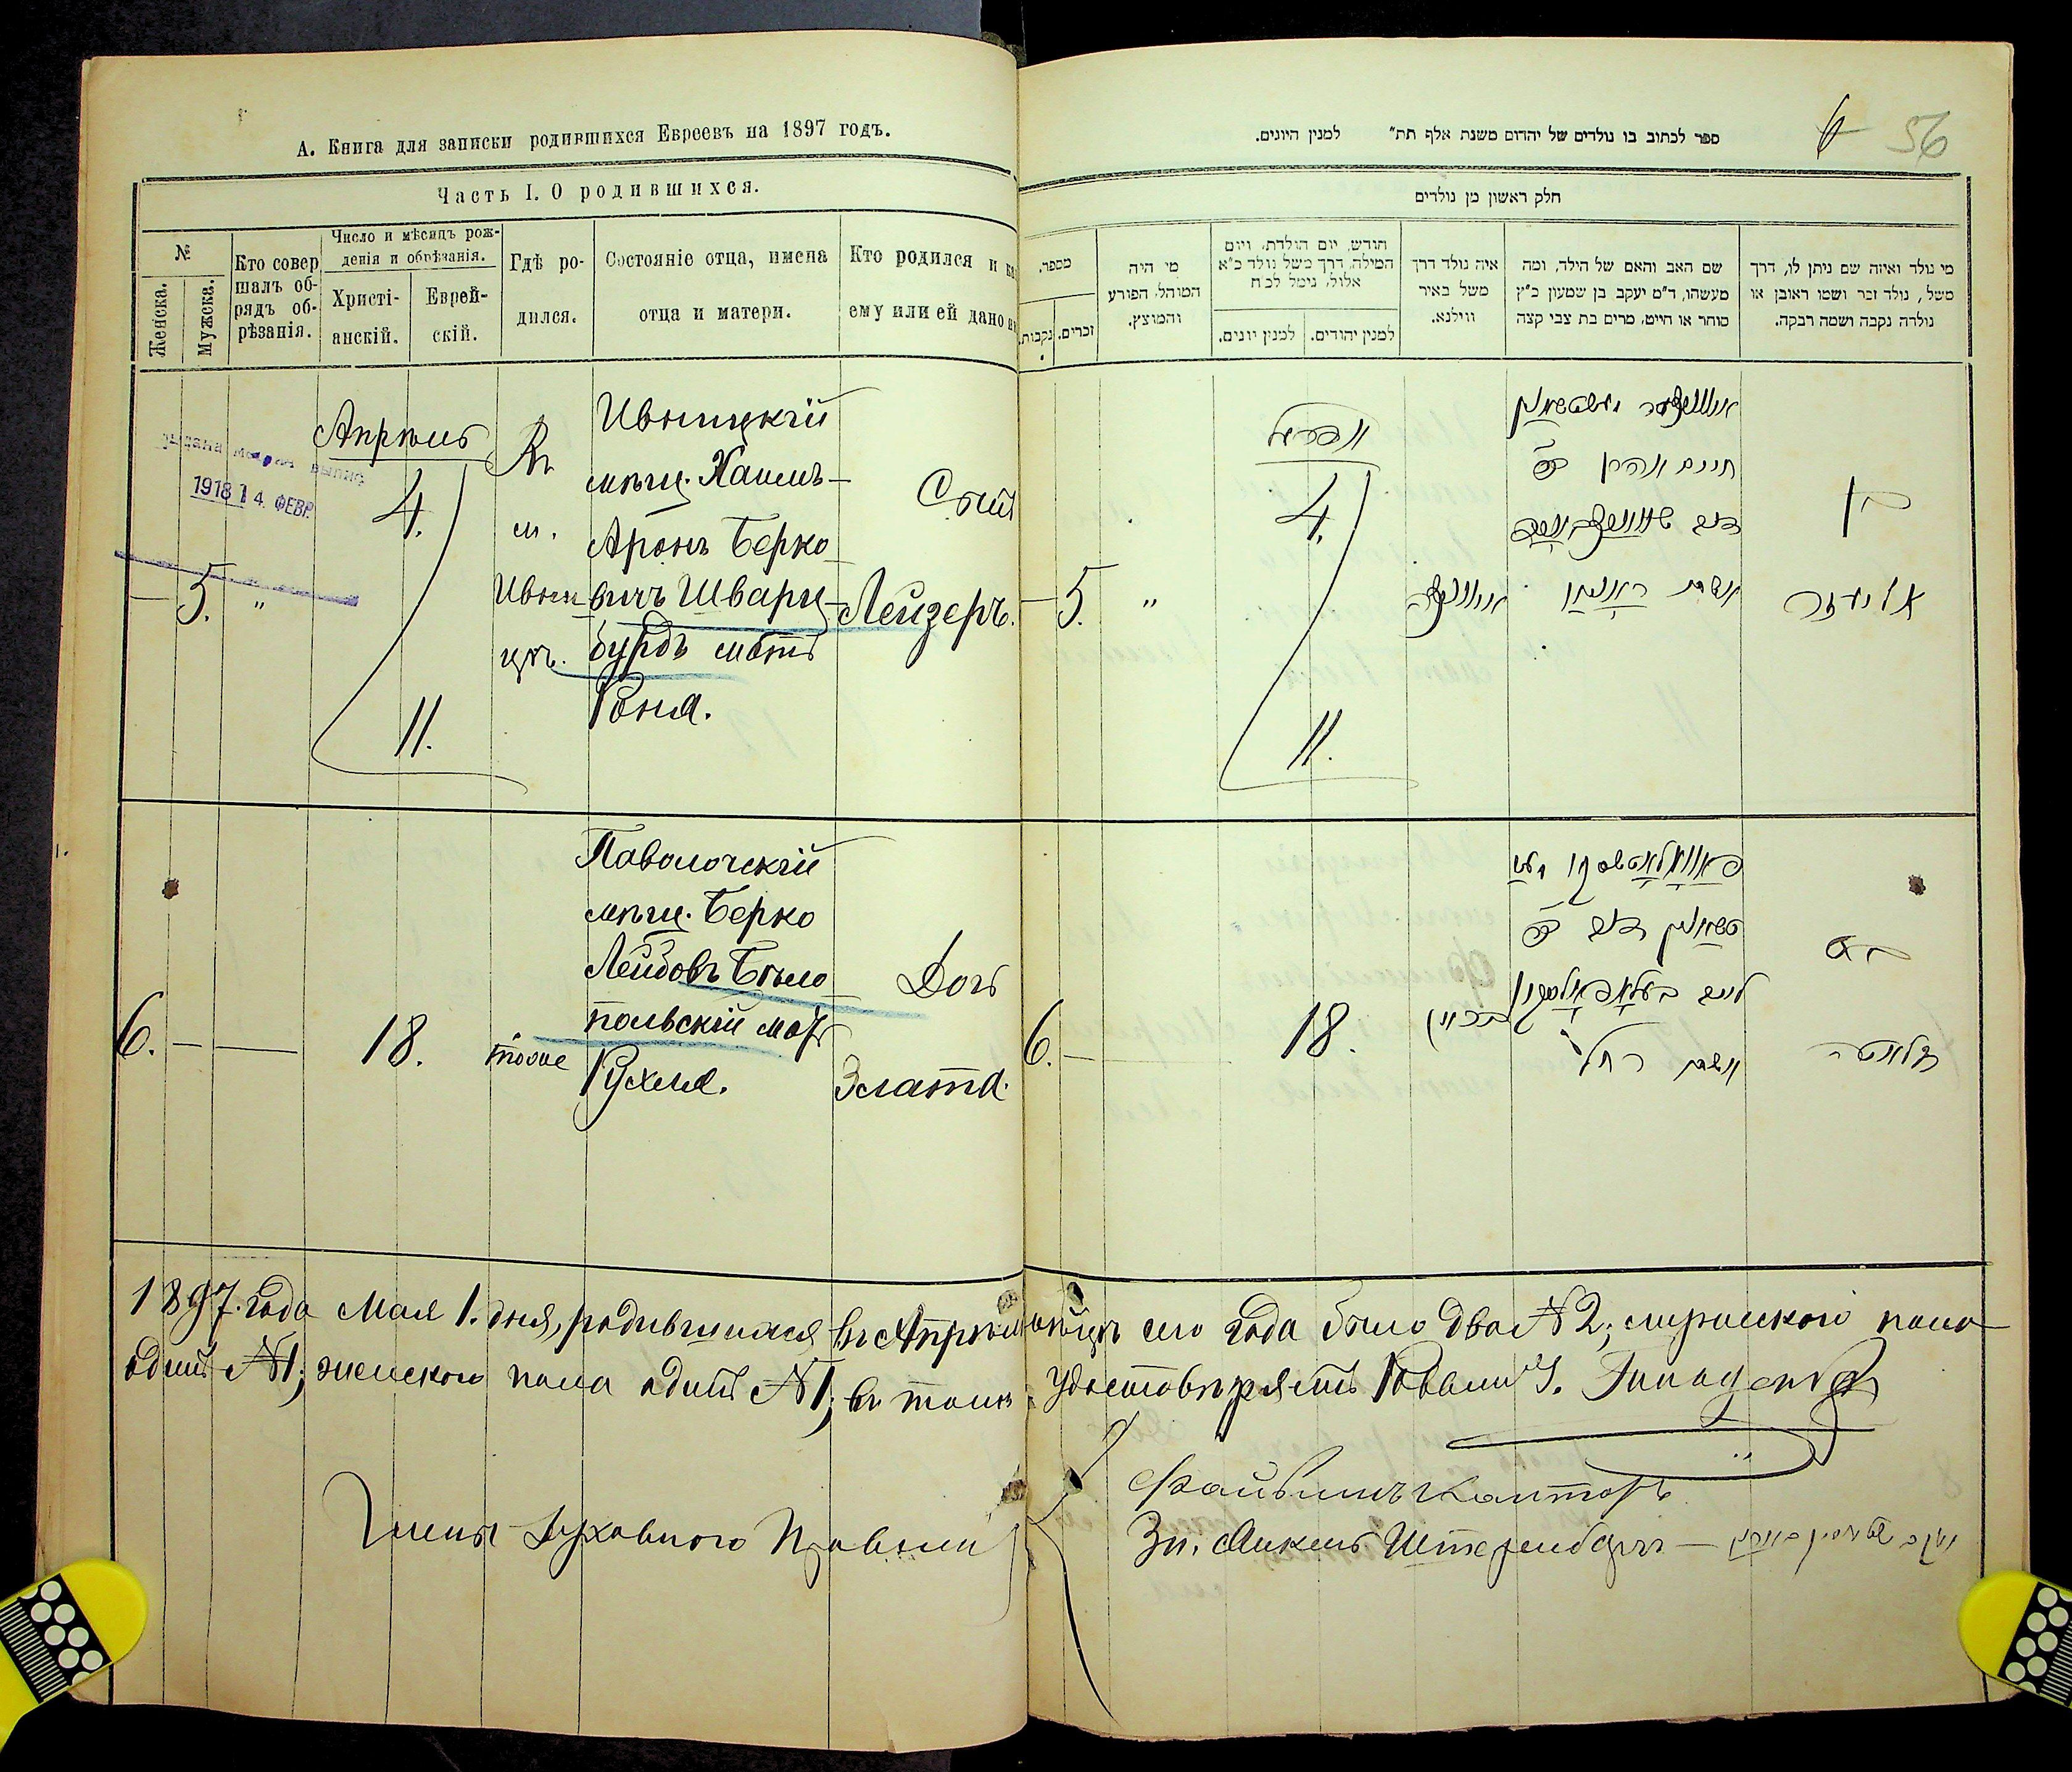 А. Книга для записки родившихся Евреевъ на 1897 годъ.
Часть I. О родившихся.
№
Женска.
Мужска.
Кто совер
шалъ об-
рядъ об-
рѣзанія.
Число и мѣсяцъ рож-
денія и обрѣзанія.
Христі-
анскій.
Еврей-
скій.
Гдѣ ро-
дился.
Состояніе отца, имена
отца и матери.
Кто родился и
ему или ей дано
1918 14 ФЕВР.
— 5. "
Апрѣль
4.
11.
Въ
м.
Ивни-
цѣ.
Ивницкій
мѣщ. Хаимъ-
Аронъ Берко-
вичъ Шварц-
бурдъ мать
Роня.
Сынъ
Лейзеръ.
6. — —
18.
тоже
Паволочскій
мѣщ. Берко
Лейбовъ Бѣло-
польскій мать
Рухля.
Дочь
Злата.
6 56
ספר לכתוב בו נולדים של יהדום משנת אלף תת" למנין היונים.
חלק ראשון מן נולדים
מי נולד ואיזה שם ניתן לו, דרך
משל, נולד זכר ושמו ראובן או
נולדה נקבה ושמה רבקה.
שם האב והאם של הילד, ומה
מעשהו, ד"מ יעקב בן שמעון כ"ץ
סוחר או חייט, מרים בת צבי קצה
איה נולד דרך
משל באיר
ווילנא.
חודש, יום הולדת, ויום
המילה, דרך משל נולד כ"א
אלול, נימל לכ"ח
למנין יהודים.
למנין יונים.
מי היה
המוהל, הפורע
והמוצץ.
מספר.
זכרים.
נקבות.
בן
אליעזר
חיים אהרן
אפריל
4.
11.
" 5. —
בת
זלאטה
רחל
18.
6. —
1897 года Мая 1. дня, родившихся въ Апрѣлѣ мѣсяцѣ сего года было два №2; мужского пола
одинъ №1; женского пола одинъ №1; въ томъ удостовѣряемъ Раввинъ
Члены Духовного Правленія
Файвишъ Канторъ